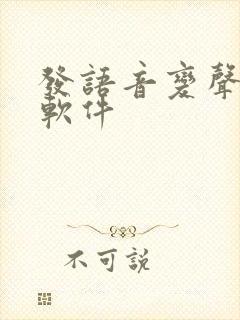 發語音變聲
軟件
不可說